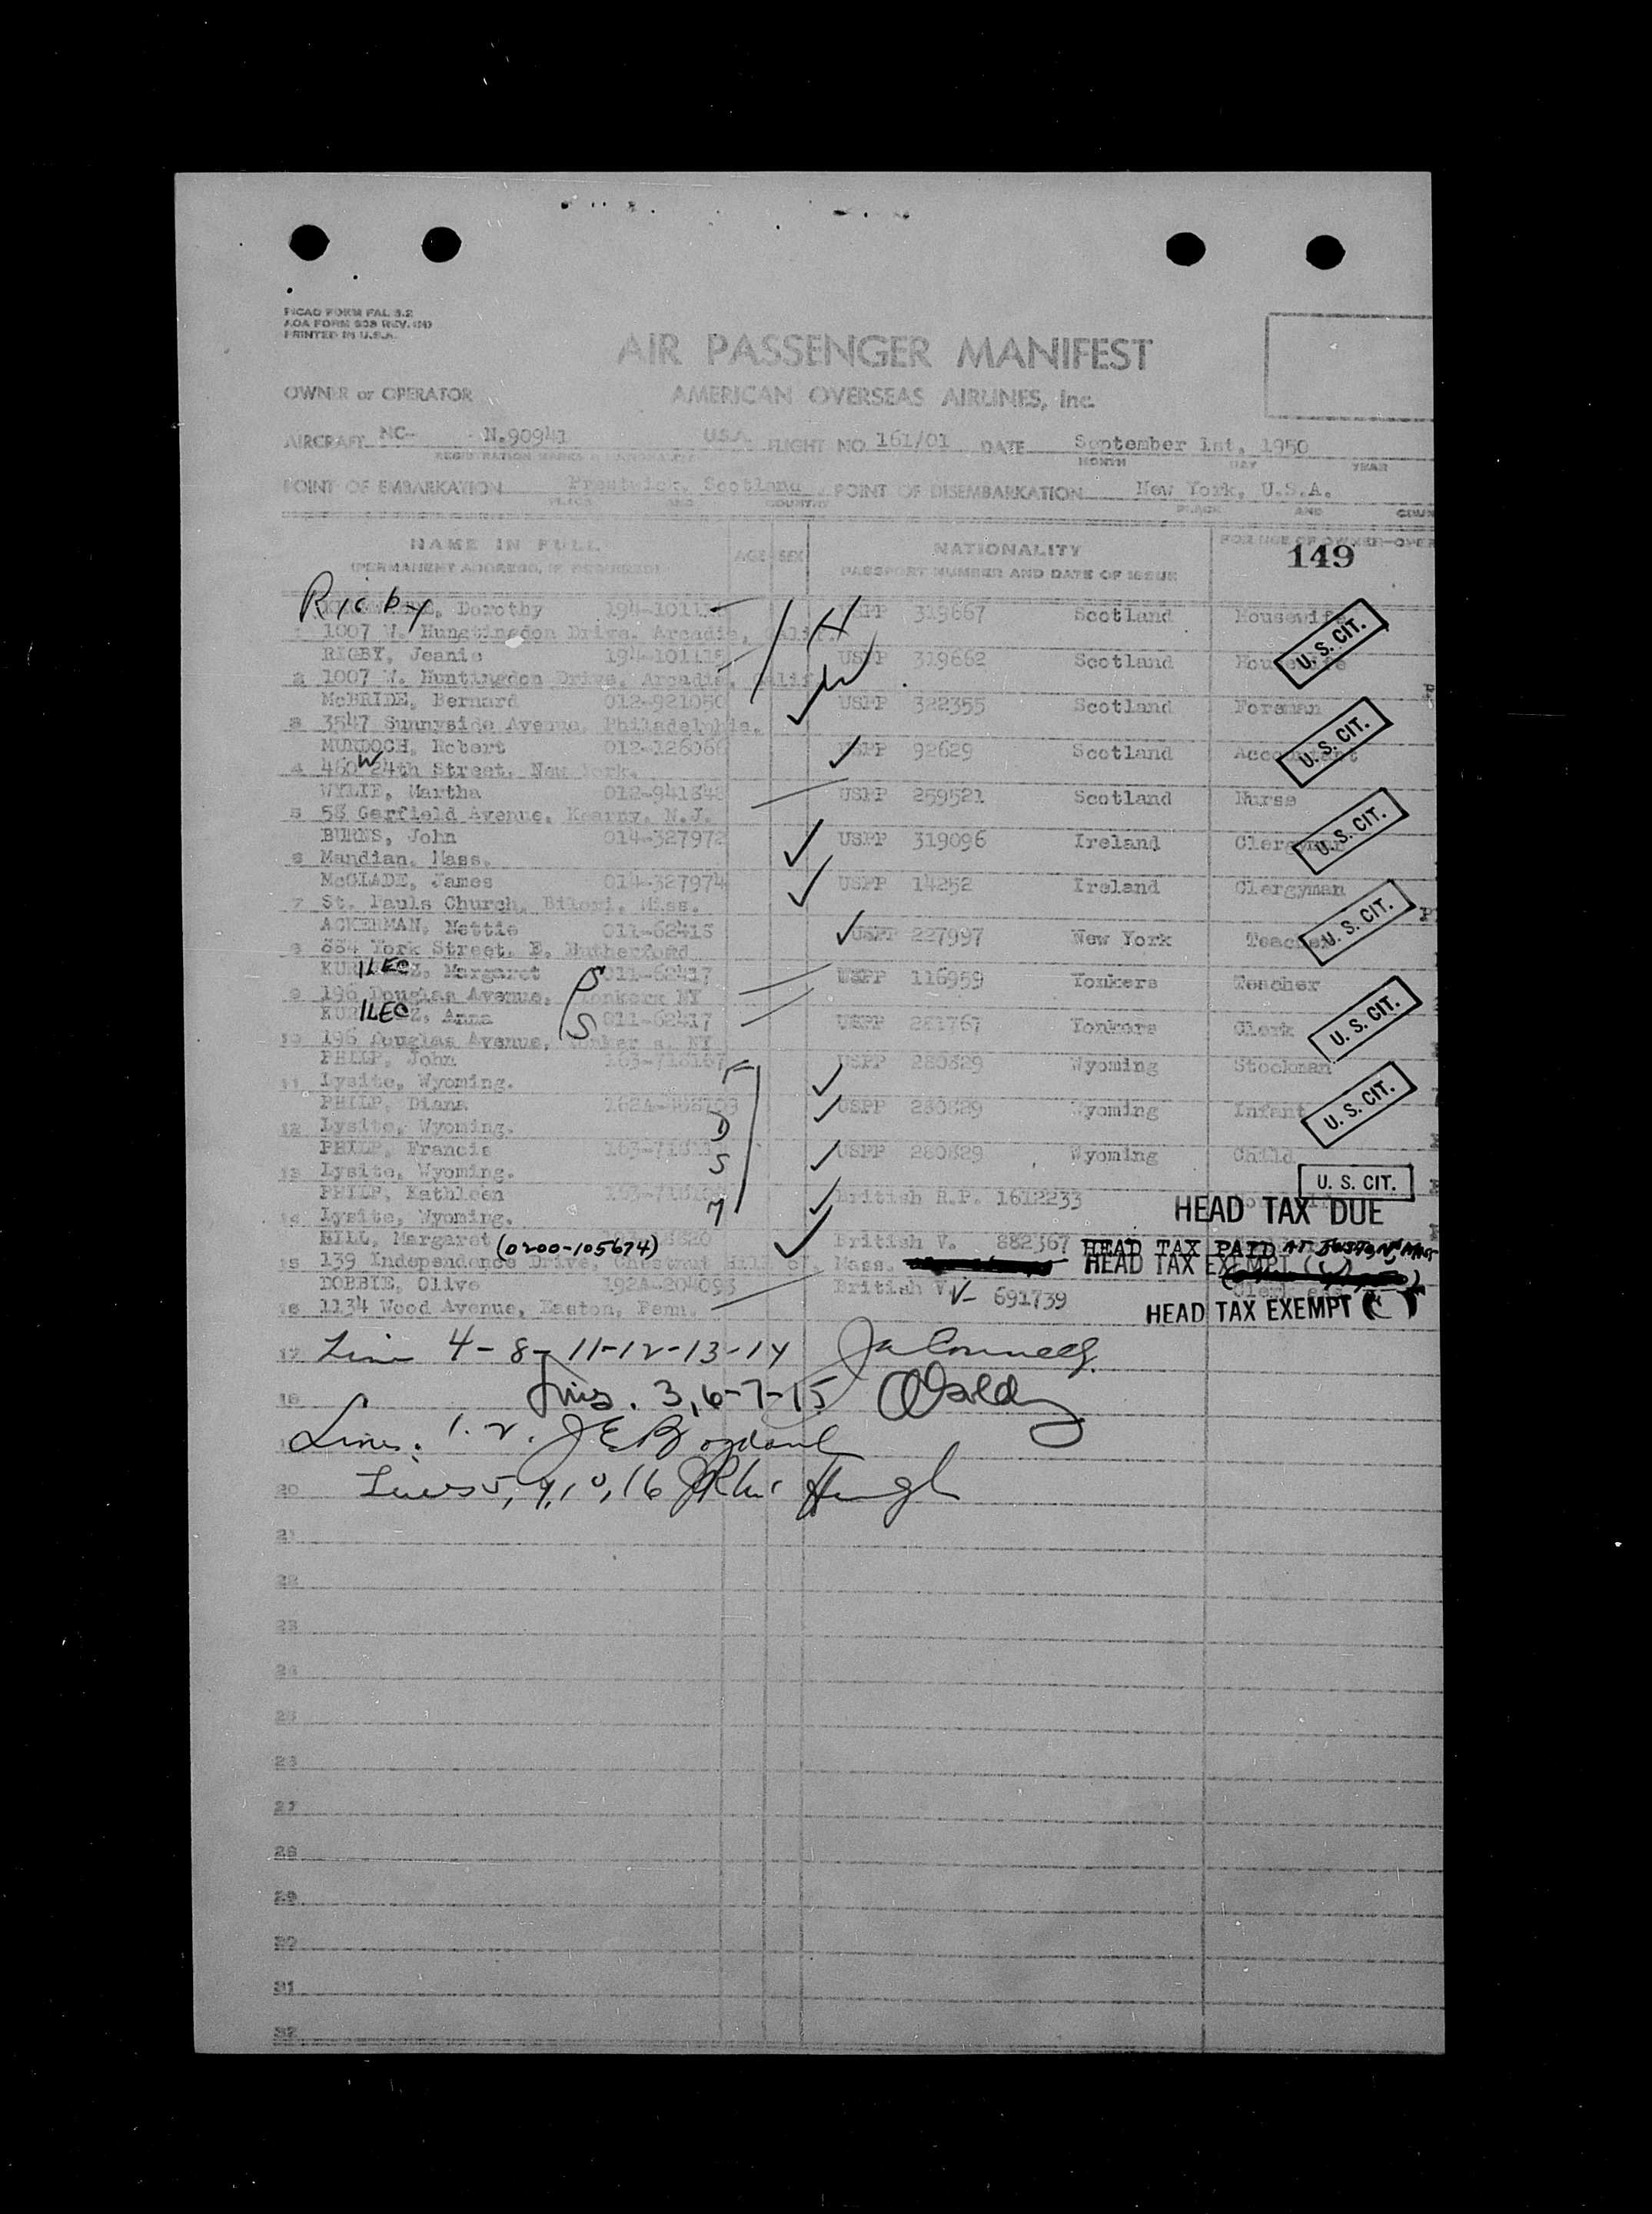 PICAO FORM FAL 3.2
AOA FORM 938 (REV.
PRINTED IN U.S.A.
AIR PASSENGER MANIFEST
OWNER or OPERATOR AMERICAN OVERSEAS AIRLINES, Inc.
AIRCRAFT NC- N.90941 U.S.A. FLIGHT NO. 161/01 DATE September 1st, 1950
REGISTRATION MARKS & NATIONALITY MONTH DAY YEAR
POINT OF EMBARKATION Prestwick, Scotland POINT OF DISEMBARKATION New York, U.S.A.
PLACE AND COUNTRY PLACE AND COUN
NAME IN FULL AGE SEX NATIONALITY FOR USE OF OWNER-OPER
(PERMANENT ADDRESS, IF REQUIRED) PASSPORT NUMBER AND DATE OF ISSUE 149
Rigby, Dorothy H USPP 319667 Scotland Housewife
1 1007 W. Hungtingdon Drive. Arcadia, Calif. U. S. CIT.
RIGBY, Jeanie 194-101115 W USPP 319662 Scotland Housewife
2 1007 W. Huntingdon Drive. Arcadia, Calif
McBRIDE, Bernard 012-921050 USPP 322355 Scotland Foreman
3 3547 Sunnyside Avenue, Philadelphia. U. S. CIT.
MURDOCH, Robert 012-126066 USPP 92629 Scotland Accountant
4 460 W 24th Street, New York.
WYLIE, Martha 012-941842 USPP 259521 Scotland Nurse
5 58 Garfield Avenue, Kearny, N.J. U. S. CIT.
BURNS, John 014-327972 USPP 319096 Ireland Clergyman
6 Mandian, Mass.
McGLADE, James 014-327974 USPP 14252 Ireland Clergyman
7 St. Pauls Church, Biloxi, Miss. U. S. CIT.
ACKERMAN, Nettie 011-62415 USPP 227997 New York Teacher
8 884 York Street, E. Rutherford
ILEC Margaret S 011-62417 USPP 116959 Yonkers Teacher
9 196 Douglas Avenue, Yonkers NY U. S. CIT.
ILEC Anna S 011-62417 USPP 281767 Yonkers Clerk
10 196 Douglas Avenue, Yonker s. NY
PHILP, John F USPP 280829 Wyoming Stockman
11 Lysite, Wyoming. U. S. CIT.
PHILP, Diana D USPP 280829 Wyoming Infant
12 Lysite, Wyoming.
PHILP, Francis S USPP 280829 Wyoming Child
13 Lysite, Wyoming. U. S. CIT.
PHILP, Kathleen M British R.P. 1612233
14 Lysite, Wyoming. HEAD TAX DUE
HILL, Margaret (0200-105674) British V. 882367 HEAD TAX PAID AT BOSTON, MASS
15 139 Independence Drive, Chestnut Hill Mass. HEAD TAX EXEMPT
DOBBIE, Olive 192A-204093 British V. V- 691739
16 1134 Wood Avenue, Easton, Penn. HEAD TAX EXEMPT
17 Line 4-8-11-12-13-14
18 Lines. 3,6-7-15
Lines. 1.2.
20 Lines 5, 9, 10, 16
21
22
23
24
25
26
27
28
29
30
31
32